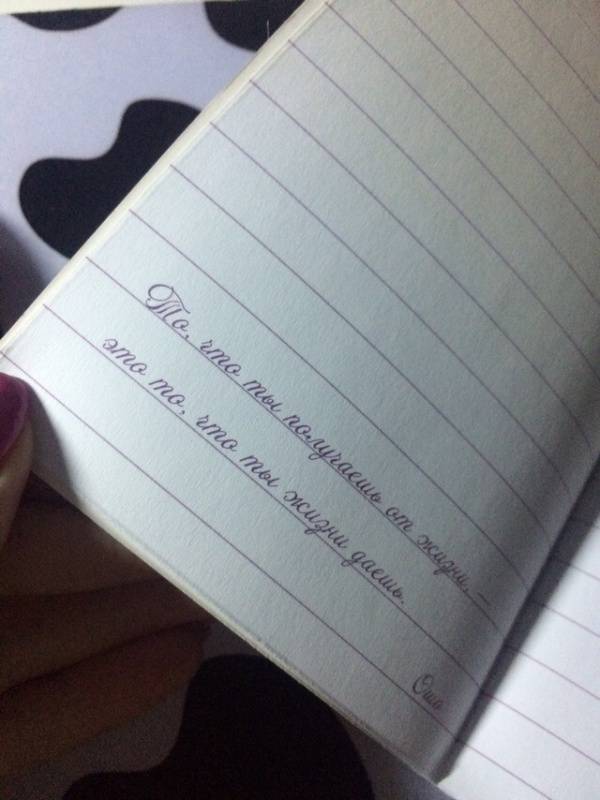 То, что ты получаешь от жизни, —
это то, что ты жизни даешь.
Ошо